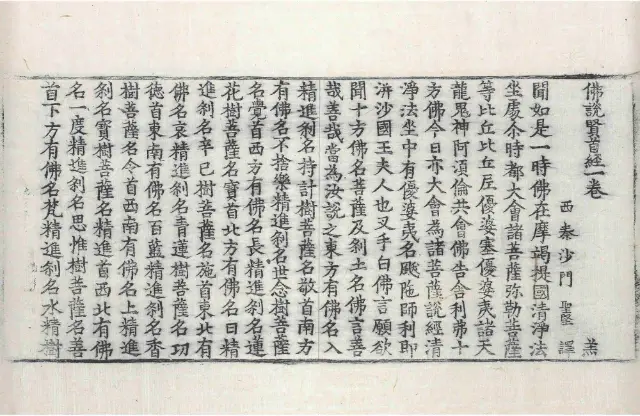 佛說賢首經一卷 羔
西秦沙門 聖堅 譯
聞如是一時佛在摩竭提國清淨法
坐處尒時都大會諸菩薩弥勒菩薩
等比丘比丘尼優婆塞優婆夷諸天
龍鬼神阿須倫共會佛告舍利弗十
方佛今日亦大會為諸菩薩說經清
淨法坐中有優婆夷名颰陁師利即
洴沙國王夫人也叉手白佛言願欲
聞十方佛名菩薩及剎土名佛言善
哉善哉當為汝說之東方有佛名入
精進剎名持計樹菩薩名敬首南方
有佛名不捨樂精進剎名世念樹菩薩
名覺首西方有佛名長精進剎名蓮
花樹菩薩名寶首北方有佛名日精
進剎名辛巳樹菩薩名施首東北有
佛名哀精進剎名青蓮樹菩薩名功
徳首東南有佛名百藍精進剎名香
樹菩薩名令首西南有佛名上精進
剎名寶樹菩薩名精進首西北有佛
名一度精進剎名思惟樹菩薩名善
首下方有佛名梵精進剎名水精樹